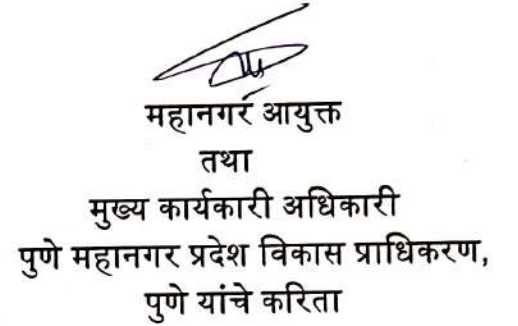 महानगर आयुक्त
तथा
मुख्य कार्यकारी अधिकारी
पुणे महानगर प्रदेश विकास प्राधिकरण,
पुणे यांचे करिता